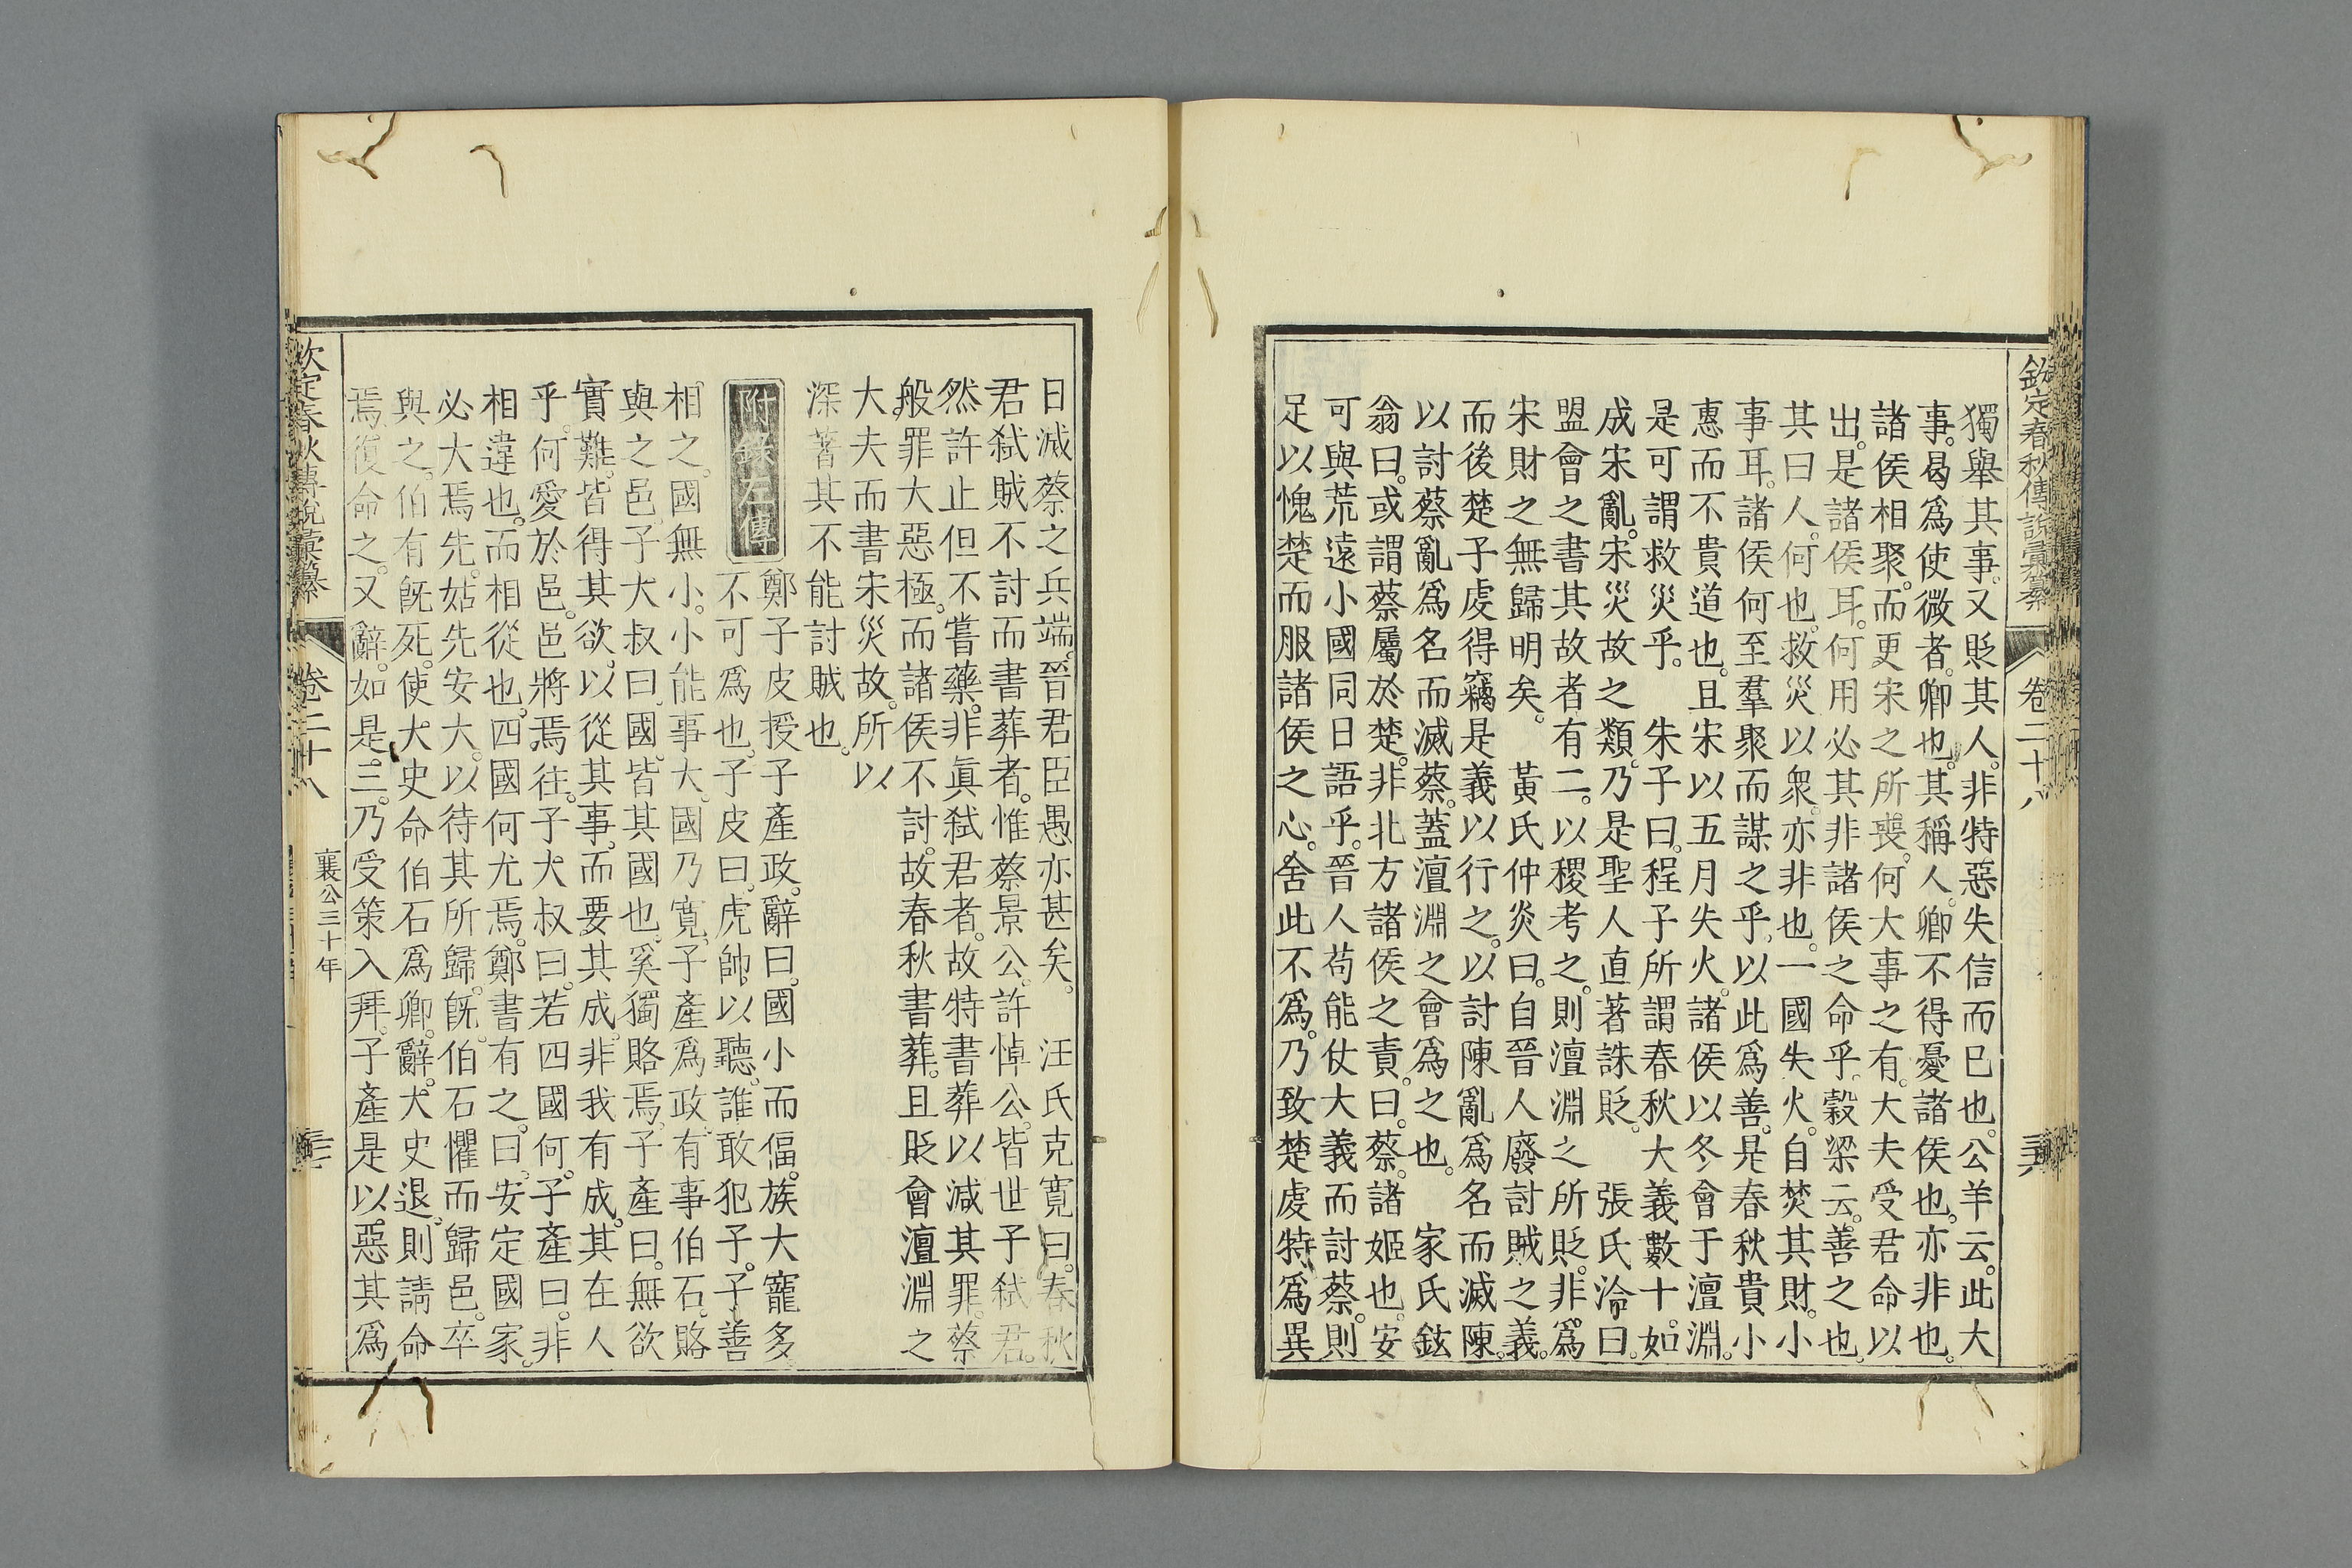 欽定春秋傳說彙纂 卷二十八
獨舉其事。又貶其人。非特惡失信而已也。公羊云。此大
事。曷爲使微者。卿也。其稱人。卿不得憂諸侯也。亦非也。
諸侯相聚。而更宋之所喪。何大事之有。大夫受君命以
出。是諸侯耳。何用必其非諸侯之命乎。穀梁云。善之也。
其曰人。何也。救災以衆。亦非也。一國失火。自焚其財。小
事耳。諸侯何至羣聚而謀之乎。以此爲善。是春秋貴小
惠而不貴道也。且宋以五月失火。諸侯以冬會于澶淵。
是可謂救災乎。 朱子曰。程子所謂春秋大義數十。如
成宋亂。宋災故之類。乃是聖人直著誅貶。 張氏洽曰。
盟會之書其故者有二。以稷考之。則澶淵之所貶。非爲
宋財之無歸明矣。 黃氏仲炎曰。自晉人廢討賊之義。
而後楚子虔得竊是義以行之。以討陳亂爲名而滅陳。
以討蔡亂爲名而滅蔡。蓋澶淵之會爲之也。 家氏鉉
翁曰。或謂蔡屬於楚。非北方諸侯之責。曰。蔡。諸姬也。安
可與荒遠小國同日語乎。晉人苟能仗大義而討蔡。則
足以愧楚而服諸侯之心。舍此不爲。乃致楚虔特爲異
日滅蔡之兵端。晉君臣愚亦甚矣。 汪氏克寬曰。春秋
君弒賊不討而書葬者。惟蔡景公。許悼公。皆世子弒君。
然許止但不嘗藥。非眞弒君者。故特書葬以減其罪。蔡
般罪大惡極。而諸侯不討。故春秋書葬。且貶會澶淵之
大夫而書宋災故。所以
深著其不能討賊也。
附錄左傳
鄭子皮授子產政。辭曰。國小而偪。族大寵多
不可爲也。子皮曰。虎帥以聽。誰敢犯子。子善
相之。國無小。小能事大。國乃寬。子產爲政。有事伯石。賂
與之邑。子大叔曰。國。皆其國也。奚獨賂焉。子產曰。無欲
實難。皆得其欲。以從其事。而要其成。非我有成。其在人
乎。何愛於邑。邑將焉往。子大叔曰。若四國何。子產曰。非
相違也。而相從也。四國何尤焉。鄭書有之。曰。安定國家。
必大焉先。姑先安大。以待其所歸。旣。伯石懼而歸邑。卒
與之。伯有旣死。使大史命伯石爲卿。辭。大史退。則請命
焉。復命之。又辭。如是三。乃受策入拜。子產是以惡其爲
欽定春秋傳說彙纂 卷二十八 襄公三十年